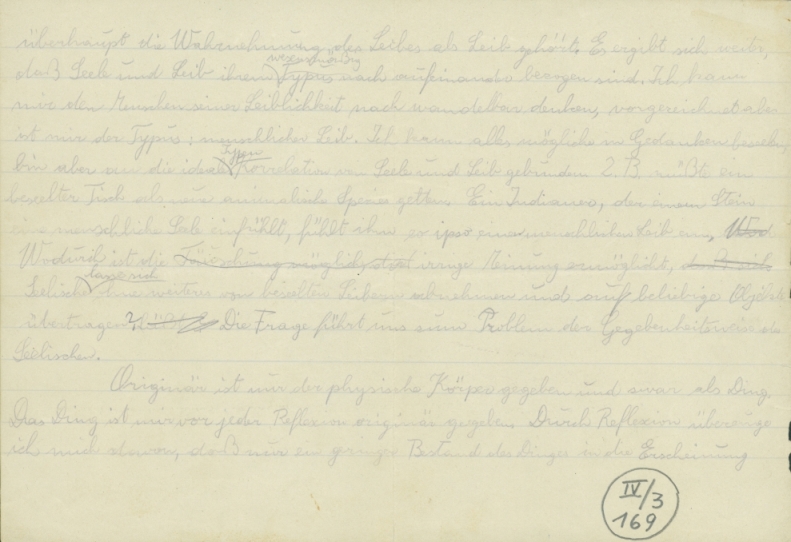 überhaupt die Wahrnehmung des Leibes als Leib gehört. Es ergibt sich weiter,
wesensmäßig
daß Seele und Leib ihrem Typus nach aufeinander bezogen sind. Ich kann
mir den Menschen seiner Leiblichkeit nach wandelbar denken, vorgezeichnet aber
ist mir der Typus: menschlicher Leib. Ich kann alles mögliche in Gedanken beseelen,
Typen
bin aber an die ideale Korrelation von Seele und Leib gebunden. Z. B. müßte ein
beseelter Tisch als neue animalische Spezies gelten. Ein Indianer, der einem Stein
eine menschliche Seele einfühlt, fühlt ihm eo ipso einen menschlichen Leib ein. Wod
Wodurch ist die Täuschung möglich, irrige Meinung ermöglicht, daß sich
Seelische ohne weiteres von beseelten Leibern abnehmen und auf beliebige Objekte
übertragen? Die Frage führt uns zum Problem der Gegebenheitsweise des
Seelischen.
Originär ist mir der physische Körper gegeben und zwar als Ding.
Das Ding ist mir vor jeder Reflexion originär gegeben. Durch Reflexion überzeuge
ich mich davon, daß nur ein geringer Bestand des Dinges in die Erscheinung
IV/3
169